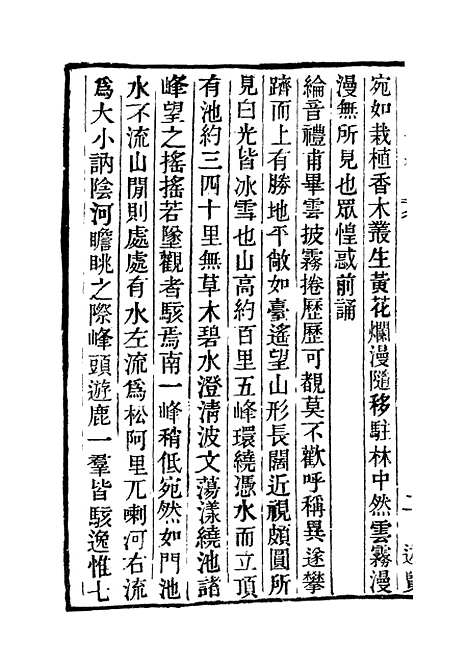 宛如栽植香木叢生黃花爛漫隨移駐林中然雲霧漫
漫無所見也眾惶惑前誦
綸音禮甫畢雲披霧捲歷歷可覩莫不歡呼稱異遂攀
躋而上有勝地平敞如臺遙望山形長闊近視頗圓所
見白光皆冰雪也山高約百里五峰環繞憑水而立頂
有池約三四十里無草木碧水澄清波文蕩漾繞池諸
峰望之搖搖若墜觀者駭焉南一峰稍低宛然如門池
水不流山閒則處處有水左流爲松阿里兀喇河右流
爲大小訥陰河瞻眺之際峰頭遊鹿一羣皆駭逸惟七